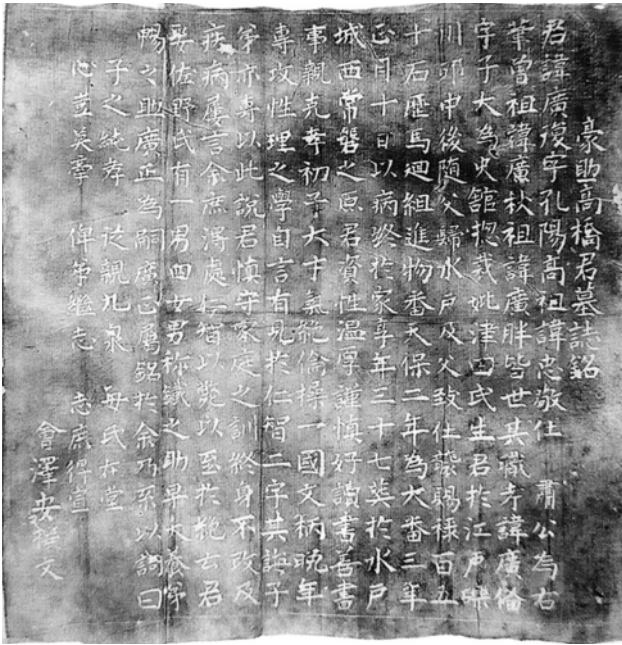 豪助高橋君墓誌銘
君諱廣復字孔陽高祖諱忠敬仕　肅公為右
筆曾祖諱廣秋祖諱廣胖皆世其職考諱廣倫
字子大為史館惣裁妣津田氏生君於江戸礫
川邸中後隨父歸水戸及父致仕襲賜禄百五
十石歴馬廻組進物番天保二年為大番三年
正月十日以病終於家享年三十七葬於水戸
城西常磐之原君資性温厚謹慎好讀書善書
事親克孝初子大才氣絶倫操一國文柄晩年
專攻性理之學自言有見於仁智二字其誨子
弟亦專以此説君慎守家庭之訓終身不改及
疾病屢言余庶得處仁智以斃以至於絶云君
娶佐野氏有一男四女男称鐵之助早夭養弟
暢之助廣正為嗣廣正屬銘於余乃系以詞曰
子之純孝　從親九泉　毋氏在堂
心豈　俾弟繼志　志庶得宣
會澤安撰文